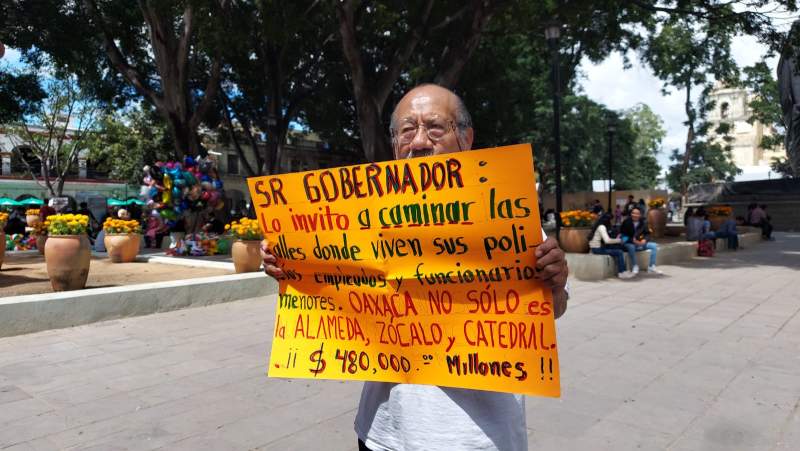 SR GOBERNADOR:
Lo invito a caminar las
calles donde viven sus poli-
empleados y funcionarios
menores. OAXACA NO SÓLO es
la ALAMEDA, ZÓCALO y CATEDRAL.
¡¡ $ 480,000.⁰⁰ Millones !!